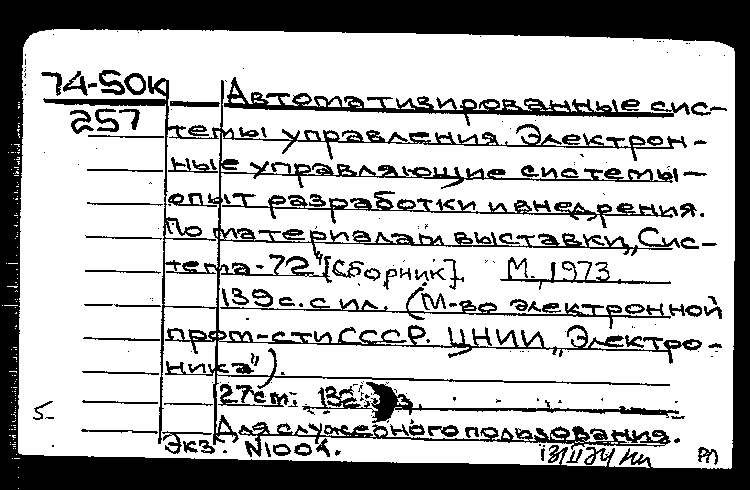 74-50к
257
Автоматизированные сис-
темы управления. Электрон-
ные управляющие системы—
опыт разработки и внедрения.
По материалам выставки „Сис-
тема-72" [Сборник]. М., 1973.
139 с. с ил. (М-во электронной
пром-сти СССР. ЦНИИ „Электро-
ника").
27 см.
5-
Для служебного пользования.
Экз. N1004.
РП